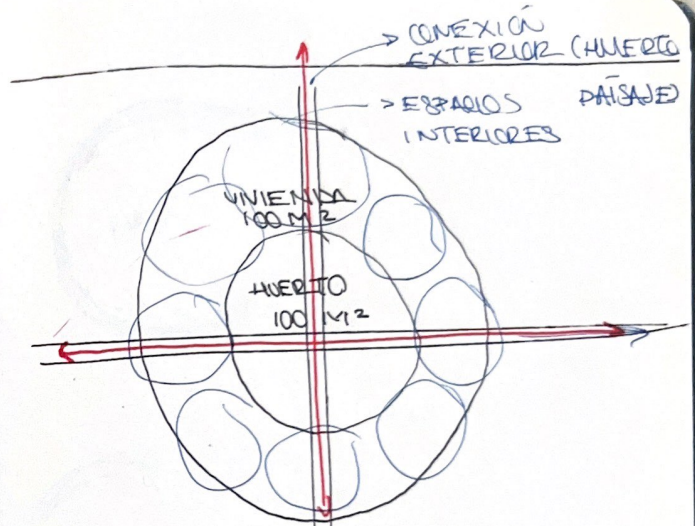 CONEXIÓN
EXTERIOR (HUERTO
PAISAJE)
ESPACIOS
INTERIORES
VIVIENDA
100 M2
HUERTO
100 M²